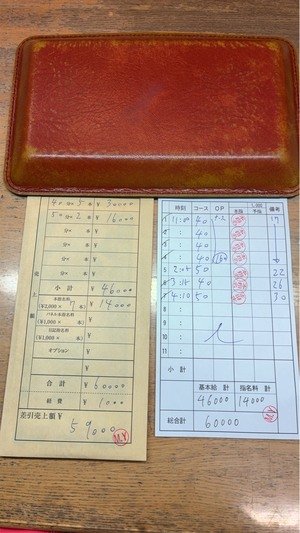 40分× 5 本 ¥ 30000
50分× 2 本 ¥ 16000
分× 本 ¥
分× 本 ¥
分× 本 ¥
分× 本 ¥
分× 本 ¥
売上額
小計 ¥ 46000
本指名料
(¥2,000× 7 本) ¥ 14000
パネル本指名料
(¥1,000× 本) ¥
日記指名料
(¥1,000× 本) ¥
オプション ¥
¥
合計 ¥ 60000
経費 ¥ 1000
差引売上額 ¥
59000
時刻 コース OP 本指 1,000 予指 備考
1 11:00 40 17
2 : 40
3 : 40
4 : 40
5 50 22
6 40 26
7 4:10 50 30
8 :
9 :
10 :
11 :
小計
基本給 計 指名料 計
46000 14000
総合計 60000